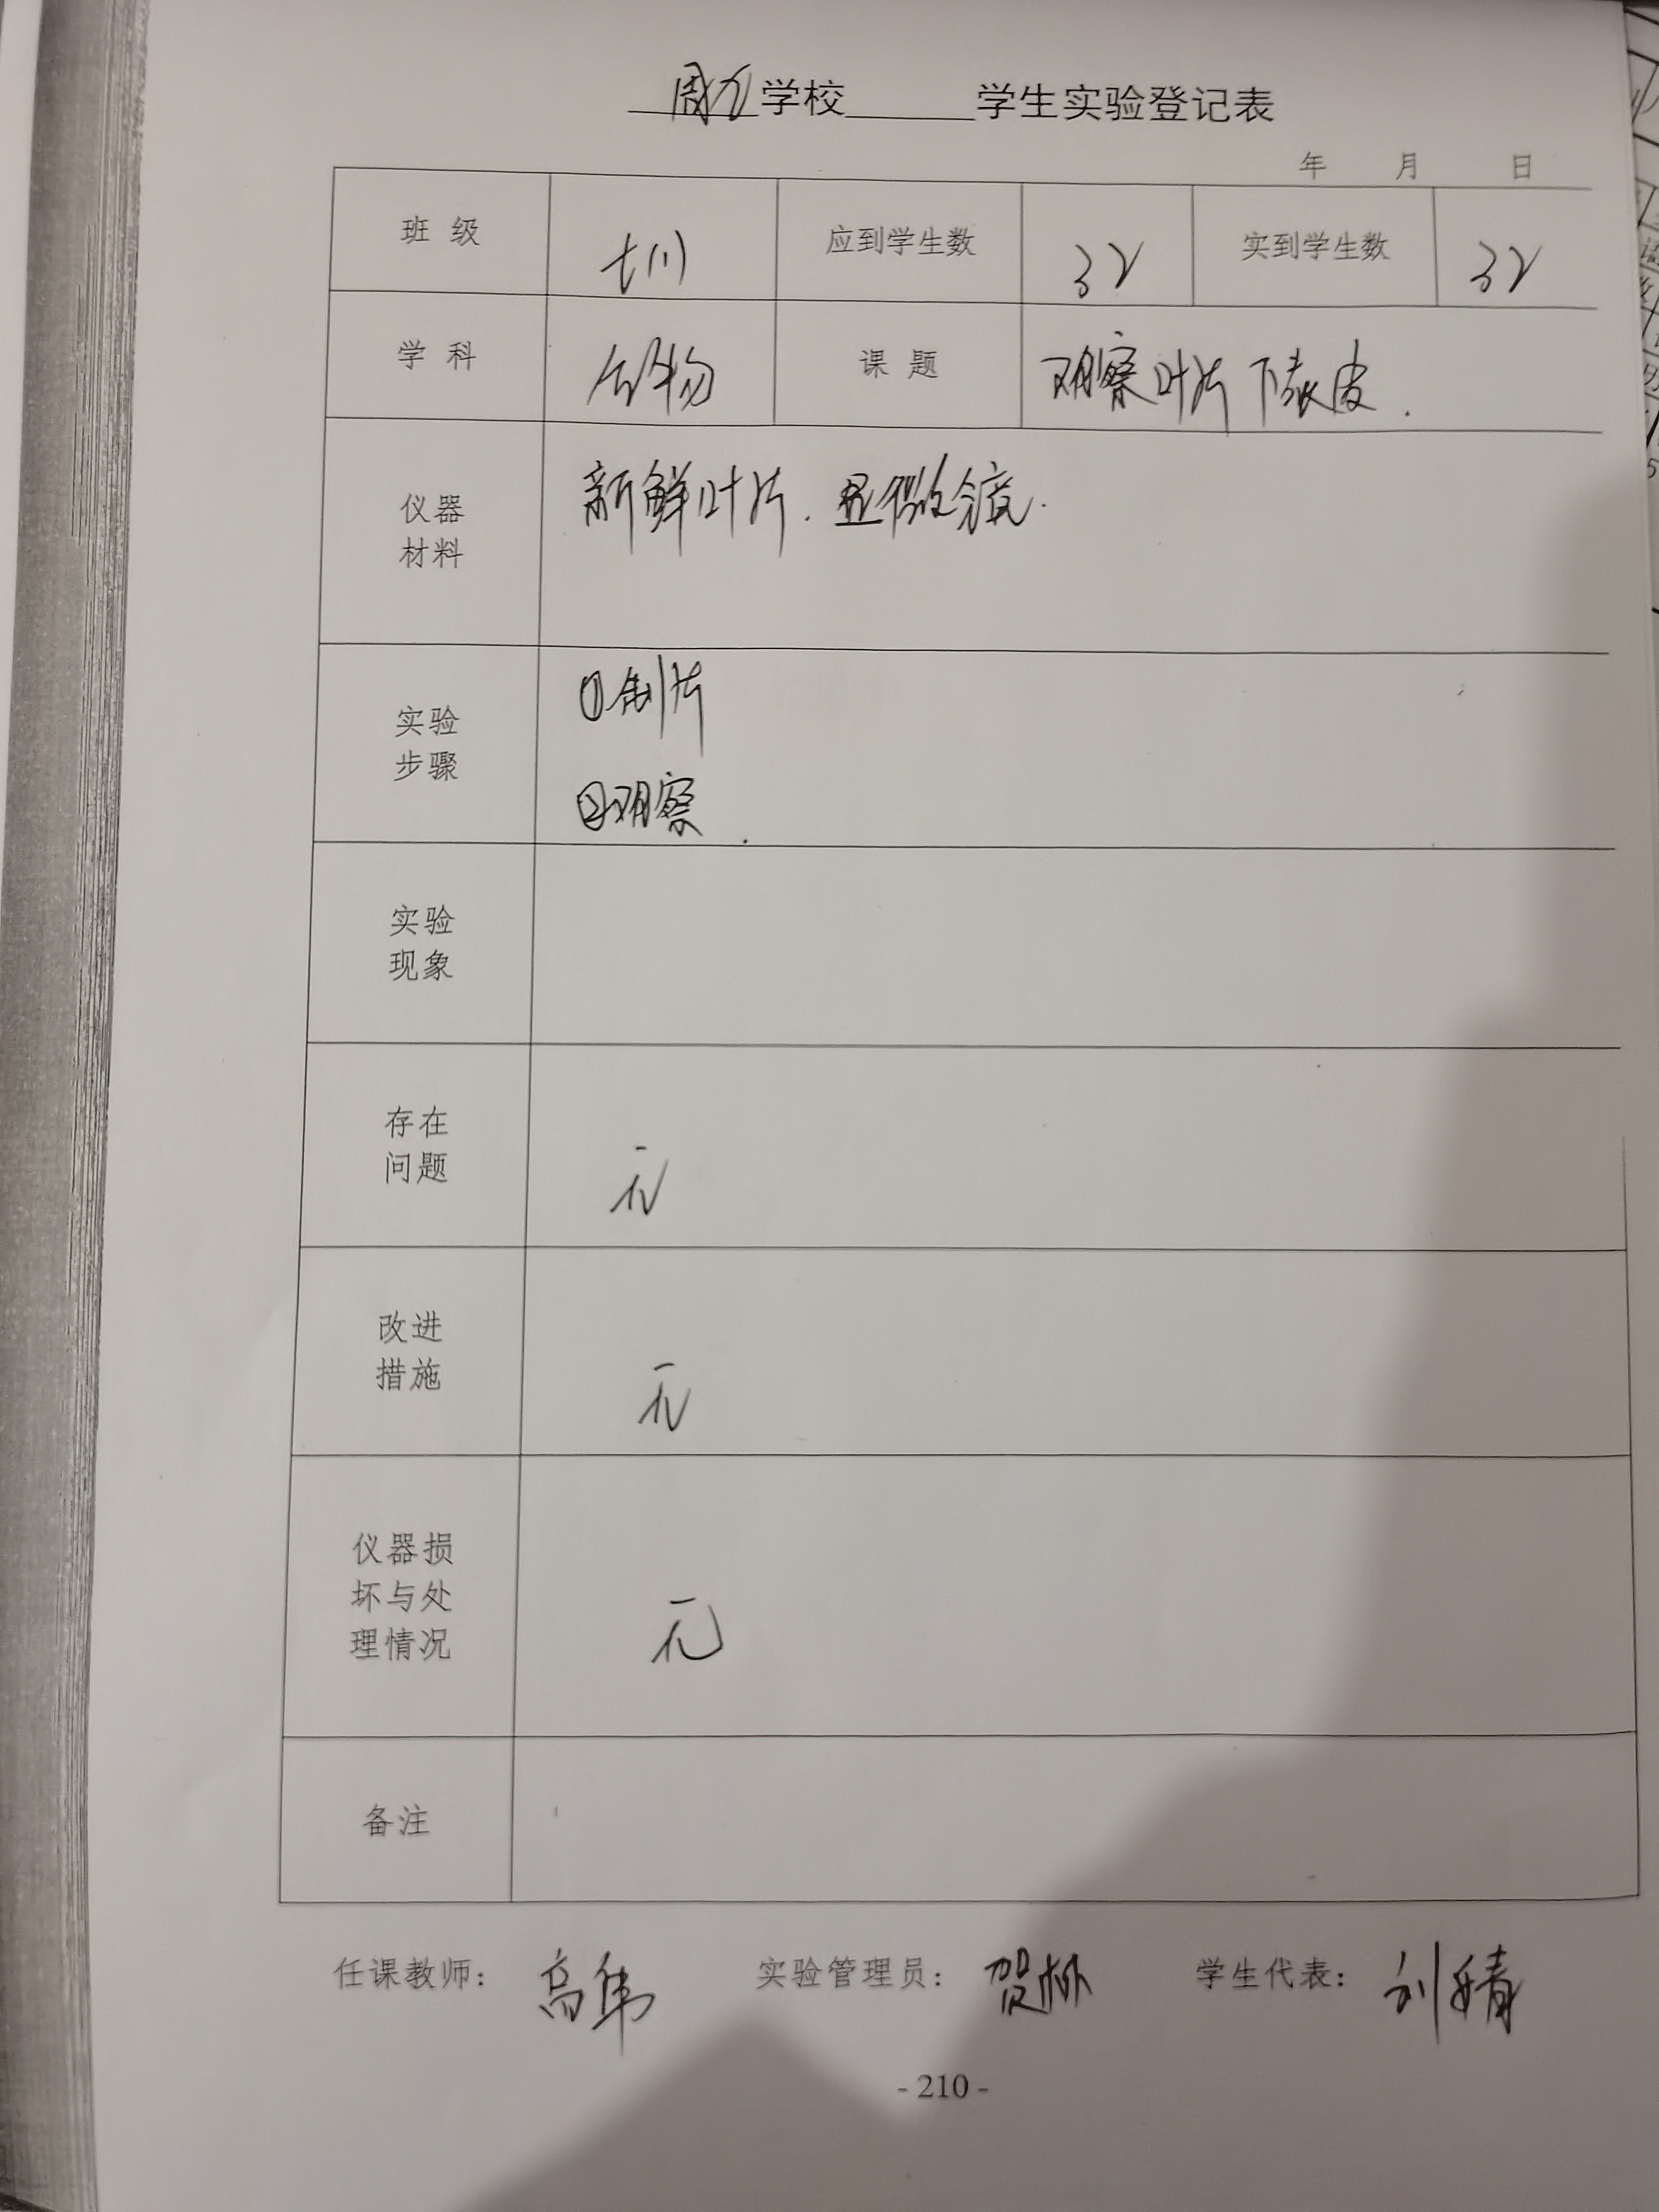 学校______学生实验登记表
年 月 日
班 级 七(1) 应到学生数 32 实到学生数 32
学 科 生物 课 题 观察叶片下表皮.
仪器
材料
新鲜叶片. 显微镜.
实验
步骤
①制片
②观察.
实验
现象
存在
问题
无
改进
措施
无
仪器损
坏与处
理情况
无
备注
任课教师: 高伟 实验管理员: 贺林 学生代表: 刘婧
- 210 -